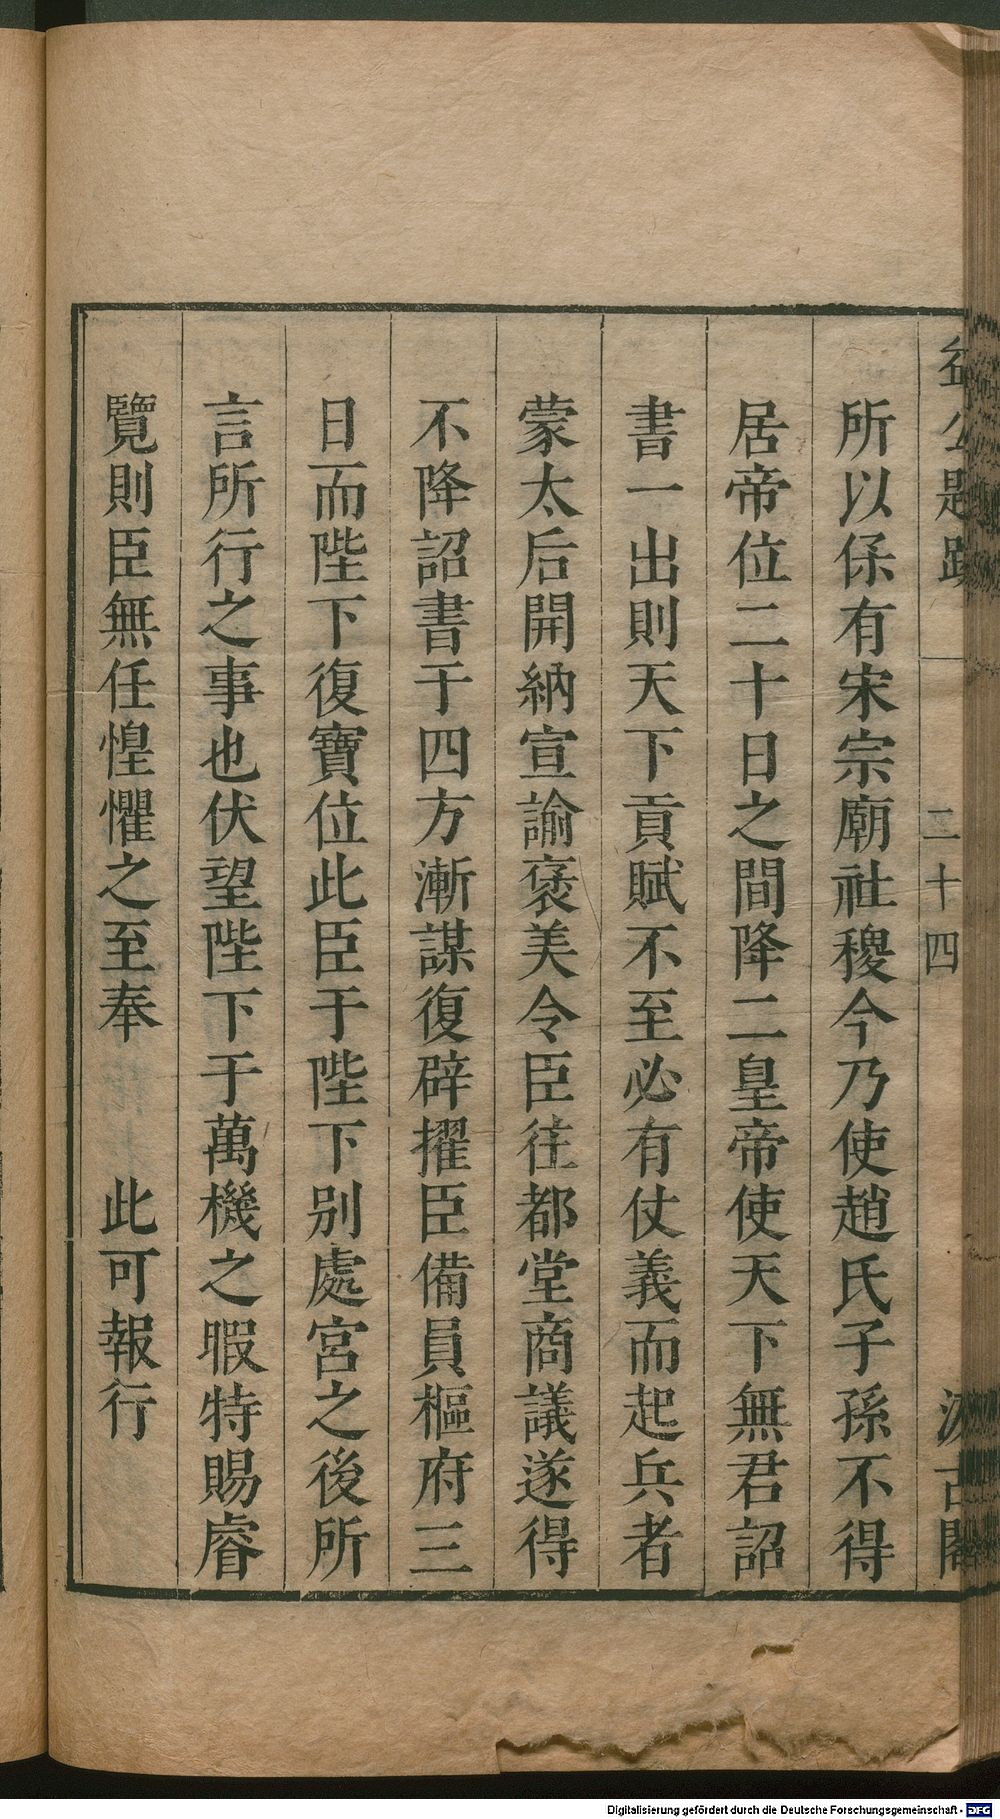 益公題跋 二十四 汲古閣
所以保有宋宗廟社稷今乃使趙氏子孫不得
居帝位二十日之間降二皇帝使天下無君詔
書一出則天下貢賦不至必有仗義而起兵者
蒙太后開納宣諭褒美令臣往都堂商議遂得
不降詔書于四方漸謀復辟擢臣備員樞府三
日而陛下復寶位此臣于陛下别處宮之後所
言所行之事也伏望陛下于萬機之暇特賜睿
覽則臣無任惶懼之至奉 此可報行
Digitalisierung gefördert durch die Deutsche Forschungsgemeinschaft - DFG